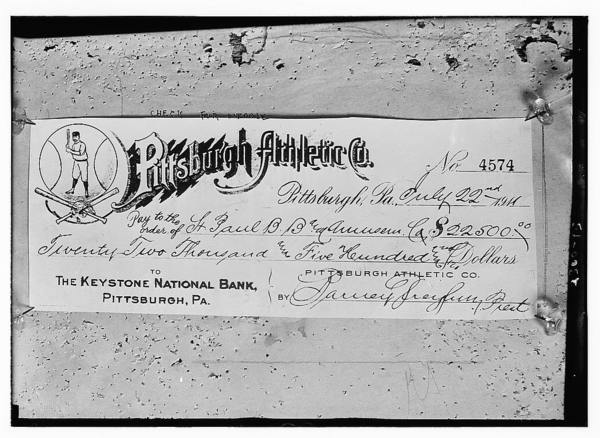 CHECK FOR O'TOOLE
Pittsburgh Athletic Co.
No 4574
Pittsburgh, Pa. July 22nd 1911
Pay to the order of St Paul B. B & Amusem. Co $22500.00
Twenty Two Thousand Five Hundred Dollars
TO
THE KEYSTONE NATIONAL BANK,
PITTSBURGH, PA.
PITTSBURGH ATHLETIC CO.
BY Barney Dreyfuss, Prest